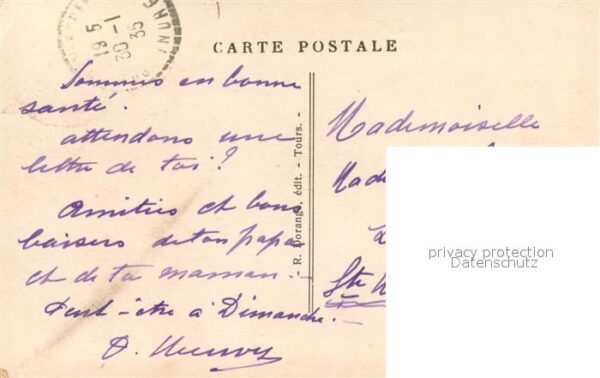 19 5
30-1
35
CARTE POSTALE
Sommes en bonne
santé.
attendons une
lettre de toi ?
Amitiés et bons
baisers de ton papa
et de ta maman. -
Peut-être à Dimanche. -
- R. Dorange, édit. - Tours. -
Mademoiselle
Made
Ste
privacy protection
Datenschutz